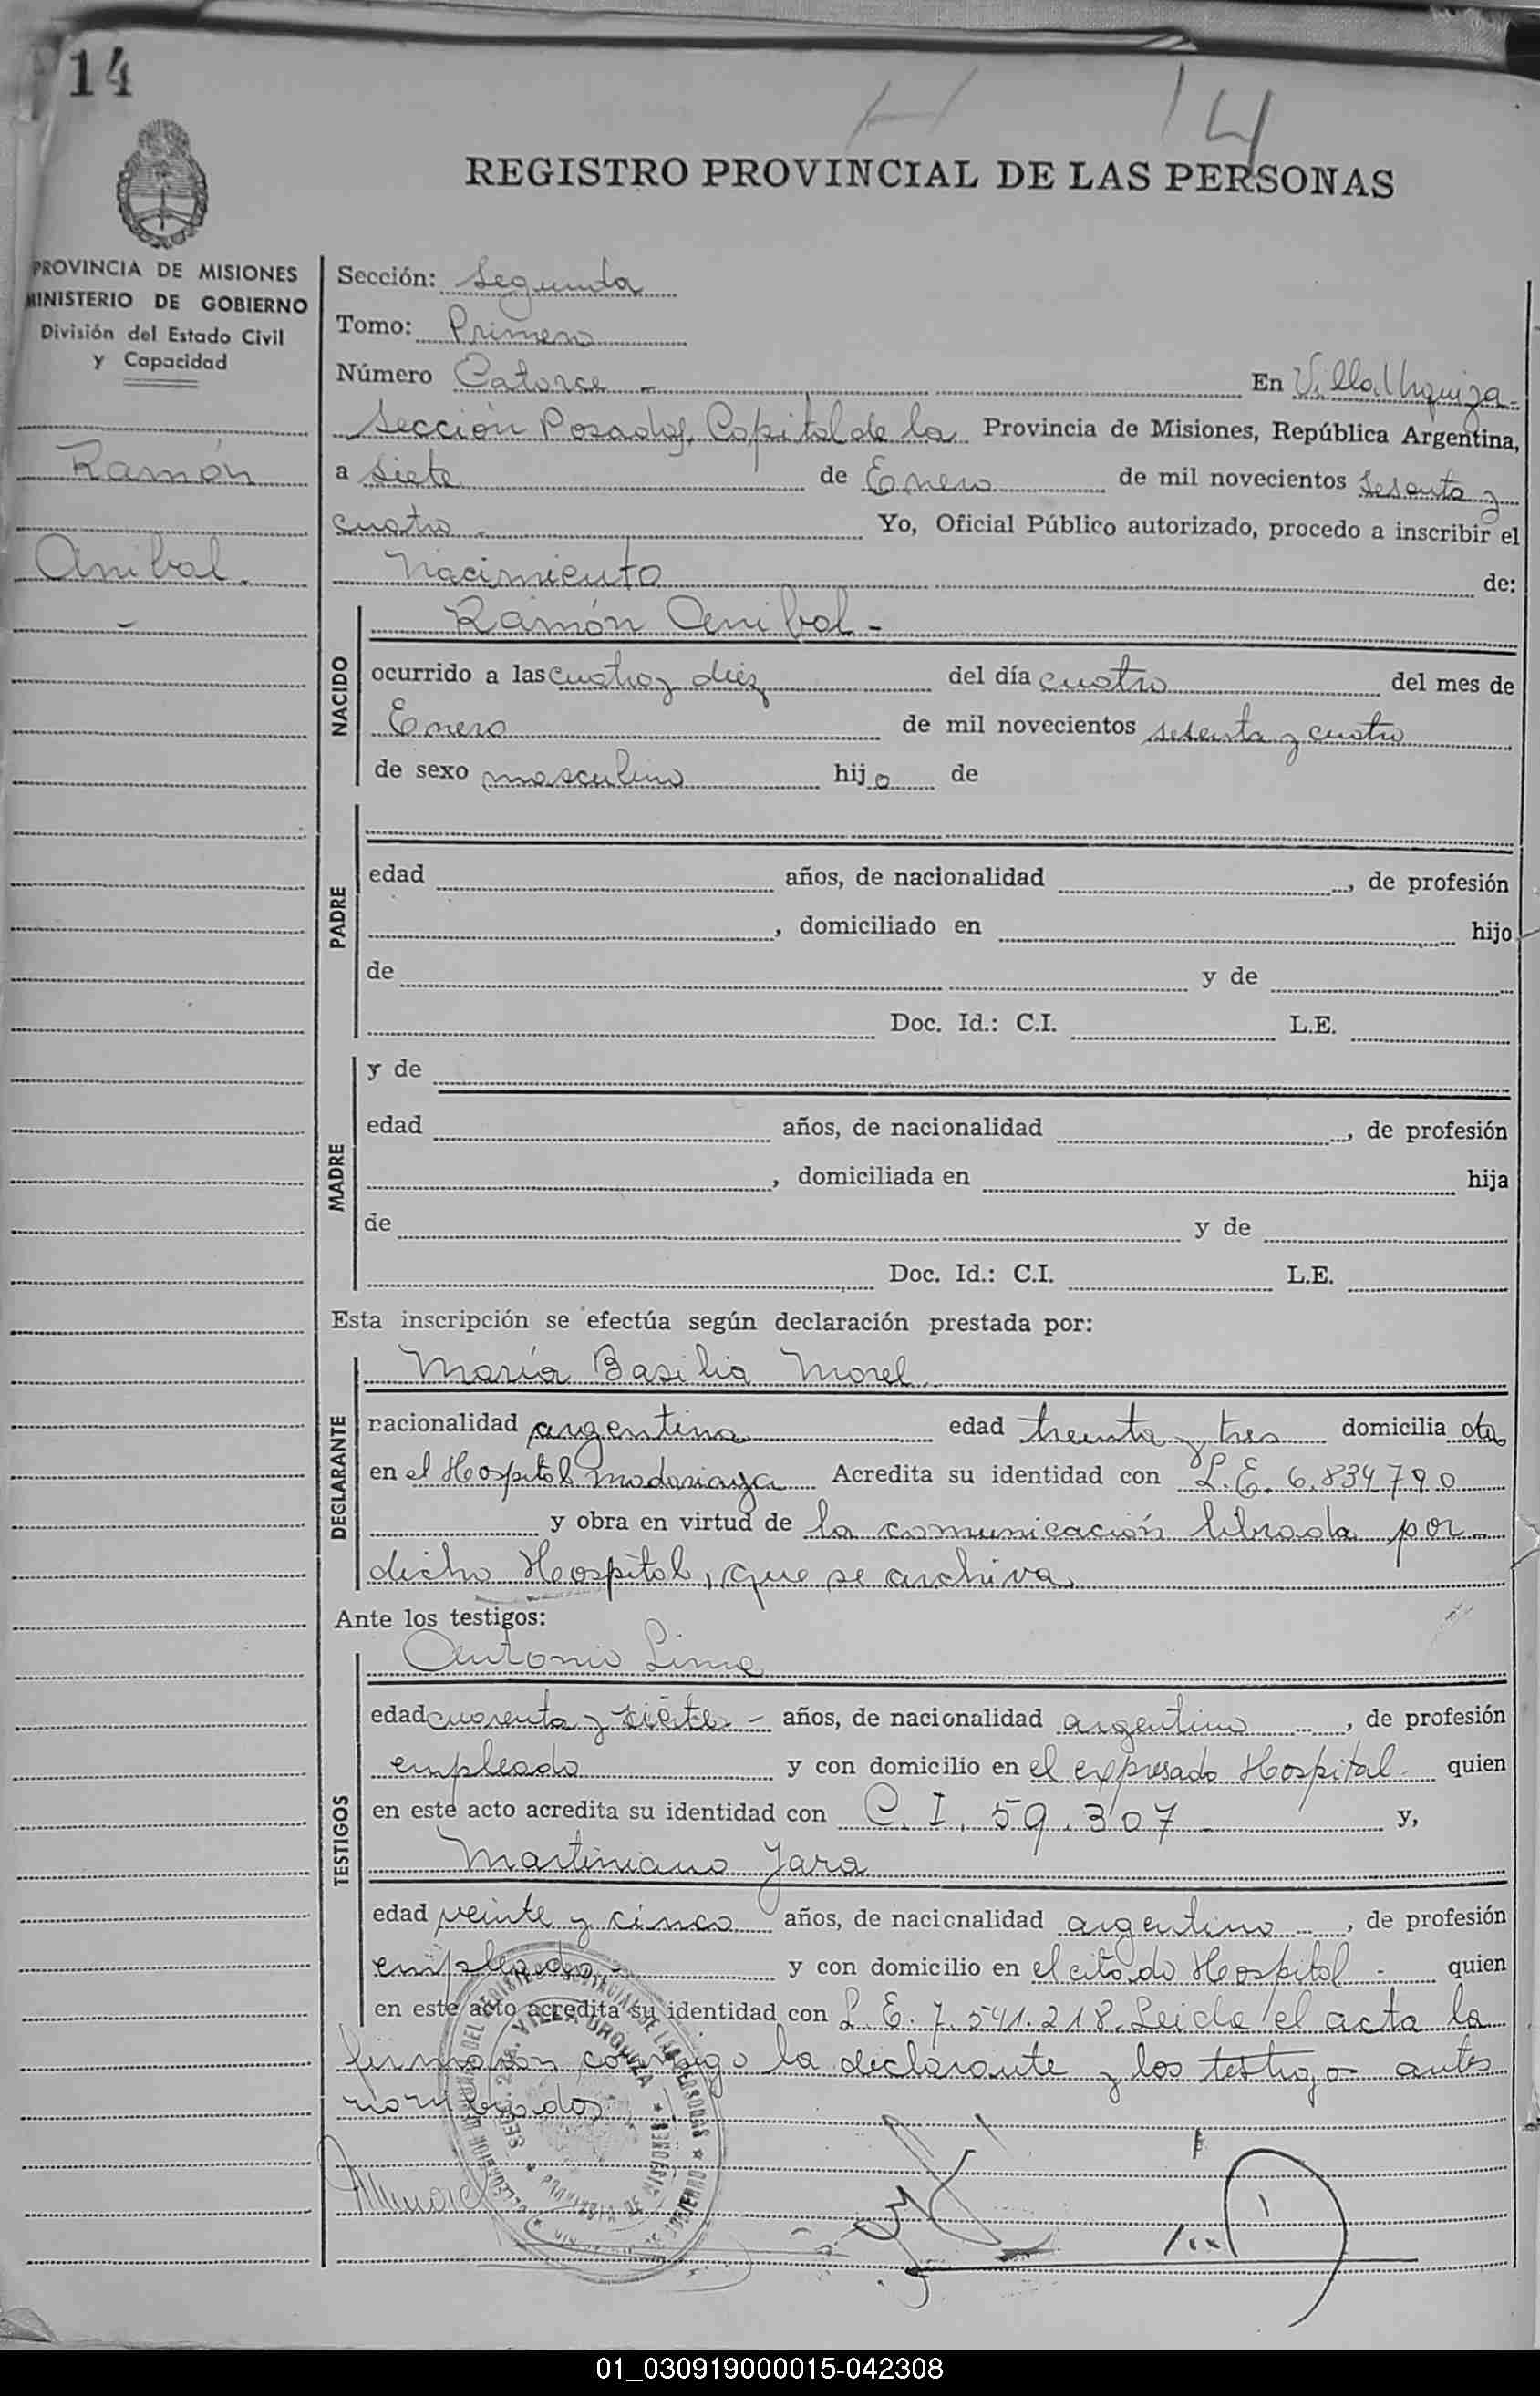 14
H 14
REGISTRO PROVINCIAL DE LAS PERSONAS
PROVINCIA DE MISIONES
MINISTERIO DE GOBIERNO
División del Estado Civil
y Capacidad
Ramón
Anibal.
Sección: Segunda
Tomo: Primero
Número Catorce - En Villa Urquiza-
Sección Posadas, Capital de la Provincia de Misiones, República Argentina,
a siete de Enero de mil novecientos sesenta y
cuatro.- Yo, Oficial Público autorizado, procedo a inscribir el
Nacimiento de:
NACIDO
Ramón Anibal -
ocurrido a las cuatro y diez del día cuatro del mes de
Enero de mil novecientos sesenta y cuatro
de sexo masculino hijo de
PADRE
edad años, de nacionalidad , de profesión
, domiciliado en hijo
de y de
Doc. Id.: C.I. L.E.
MADRE
y de
edad años, de nacionalidad , de profesión
, domiciliada en hija
de y de
Doc. Id.: C.I. L.E.
Esta inscripción se efectúa según declaración prestada por:
DECLARANTE
María Basilia Morel
nacionalidad argentina edad treinta y tres domicilia da
en el Hospital Madariaga Acredita su identidad con L.E. 6.834790
y obra en virtud de la comunicación librada por
dicho Hospital, que se archiva.
Ante los testigos:
TESTIGOS
Antonio Lima
edad cuarenta y siete - años, de nacionalidad argentino , de profesión
empleado y con domicilio en el expresado Hospital quien
en este acto acredita su identidad con C.I. 59.307 - y,
Martiniano Jara
edad veinte y cinco años, de nacionalidad argentino , de profesión
empleado y con domicilio en el citado Hospital - quien
en este acto acredita su identidad con L.E. 7.541.218. Leida el acta la
firmaron conmigo la declarante y los testigos antes
nombrados
SEC. 2da. VILLA URQUIZA
PROVINCIA DE MISIONES
01_030919000015-042308